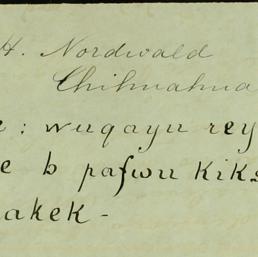 H. Nordwald
Chihuahua
: wuqayu rey
e b pafwu kiks
akek -